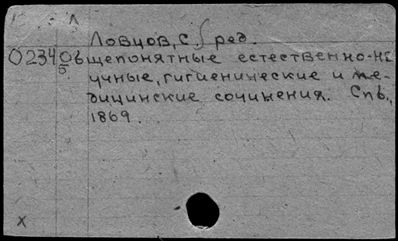 Ловцов, С. ред.
02340б щепонятные естественно-на
5 учные, гигиенические и ме-
дицинские сочинения. Спб.,
1869.
х